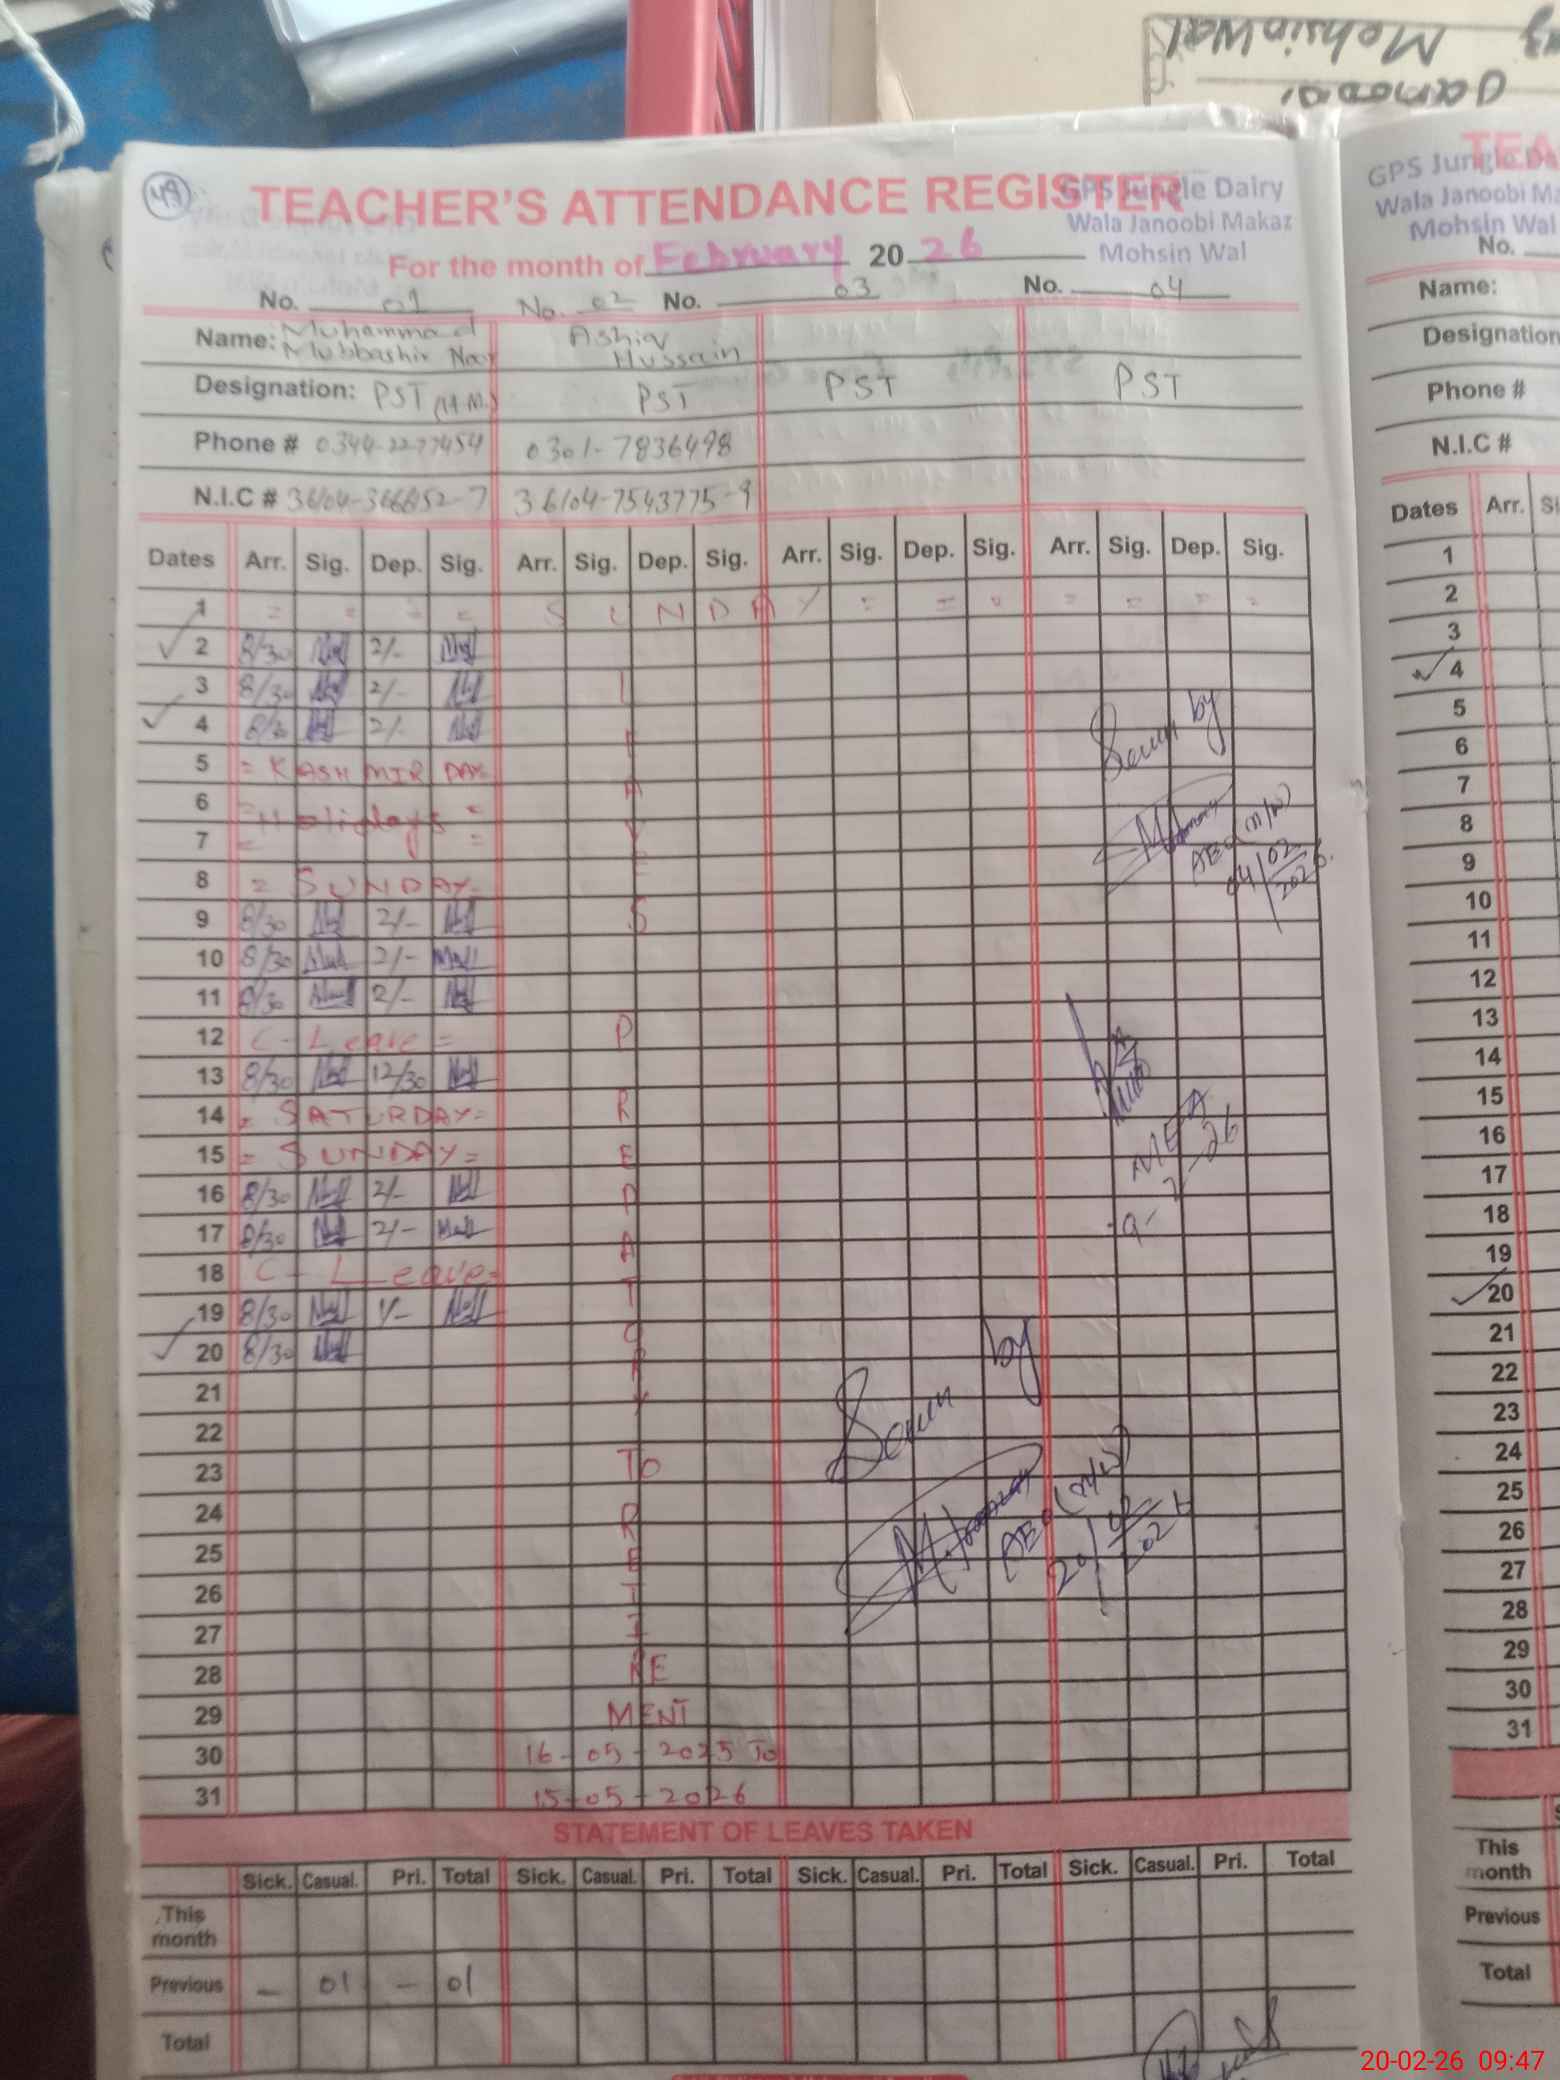 Mohsin Wal
Janoobi
49
TEACHER'S ATTENDANCE REGISTER
GPS Jungle Dairy
Wala Janoobi Makaz
Mohsin Wal
For the month of February 2026
No. 01 No. 02 No. 03 No. 04
Name: Muhammad Mubbashir Noor Ashiq Hussain
Designation: PST (H.M.) PST PST PST
Phone # 0344-2277454 0301-7836498
N.I.C # 36104-7543775-9
Dates Arr. Sig. Dep. Sig. Arr. Sig. Dep. Sig. Arr. Sig. Dep. Sig. Arr. Sig. Dep. Sig.
1 = = = = S U N D A Y = = = = = = =
2 8/30 2/-
3 8/30 2/-
4 8/30 2/-
5 = KASHMIR DAY =
6 = Holidays =
7 = =
8 = SUNDAY =
9 8/30 2/-
10 8/30 2/-
11 8/30 2/-
12 C - Leave =
13 8/30 12/30
14 = SATURDAY =
15 = SUNDAY =
16 8/30 2/-
17 8/30 2/-
18 C - Leave =
19 8/30 1/-
20 8/30
21
22
23
24
25
26
27
28
29
30
31
LEAVES
PREPARATORY
TO
RETIRE
MENT
16-05-2025 To
15-05-2026
Seen by
AEO (M/W)
04/02/2026
MEA
Seen by
AEO (M/W)
20/02/2026
STATEMENT OF LEAVES TAKEN
Sick. Casual. Pri. Total Sick. Casual. Pri. Total Sick. Casual. Pri. Total Sick. Casual. Pri. Total
This month
Previous - 01 - 01
Total
TEA
GPS Jungle Da
Wala Janoobi Ma
Mohsin Wal
No.
Name:
Designation
Phone #
N.I.C #
Dates Arr. Si
1
2
3
4
5
6
7
8
9
10
11
12
13
14
15
16
17
18
19
20
21
22
23
24
25
26
27
28
29
30
31
This month
Previous
Total
20-02-26 09:47